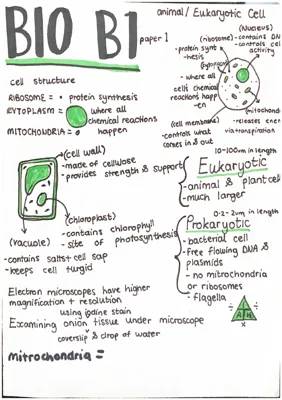 BIO B1
paper 1
animal/ Eukaryotic Cell
(Nucleus)
- contains DN
- controls cel
activity
(ribosome)-
- protein synt
-hesis
(cytoplasm)
- where all
chemical
reactions happ
-en
(mitochond
- releases ener
via transpiration
(cell membrane)
- controls what
comes in & out
cell structure
RIBOSOME = • protein synthesis
CYTOPLASM = where all
chemical reactions
happen
MITOCHONDRIA =
(cell wall)
- made of cellulose
- provides strength & support
(chloroplast)
- contains chlorophyll
- site of photosynthesis
(vacuole)
- contains salts+ cell sap
- keeps cell turgid
10-100um in length
Eukaryotic
- animal & plant cell
- much larger
0.2-2um in length
Prokaryotic
- bacterial cell
- Free flowing DNA &
plasmids
- no mitochondria
or ribosomes
- flagella
Electron microscopes have higher
magnification + resolution
using iodine stain
Examining onion tissue under microscope
coverslip & drop of water
I
A M
mitrochondria =